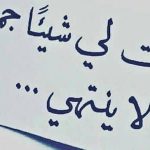 لي شيئًا
لا ينتهي ...